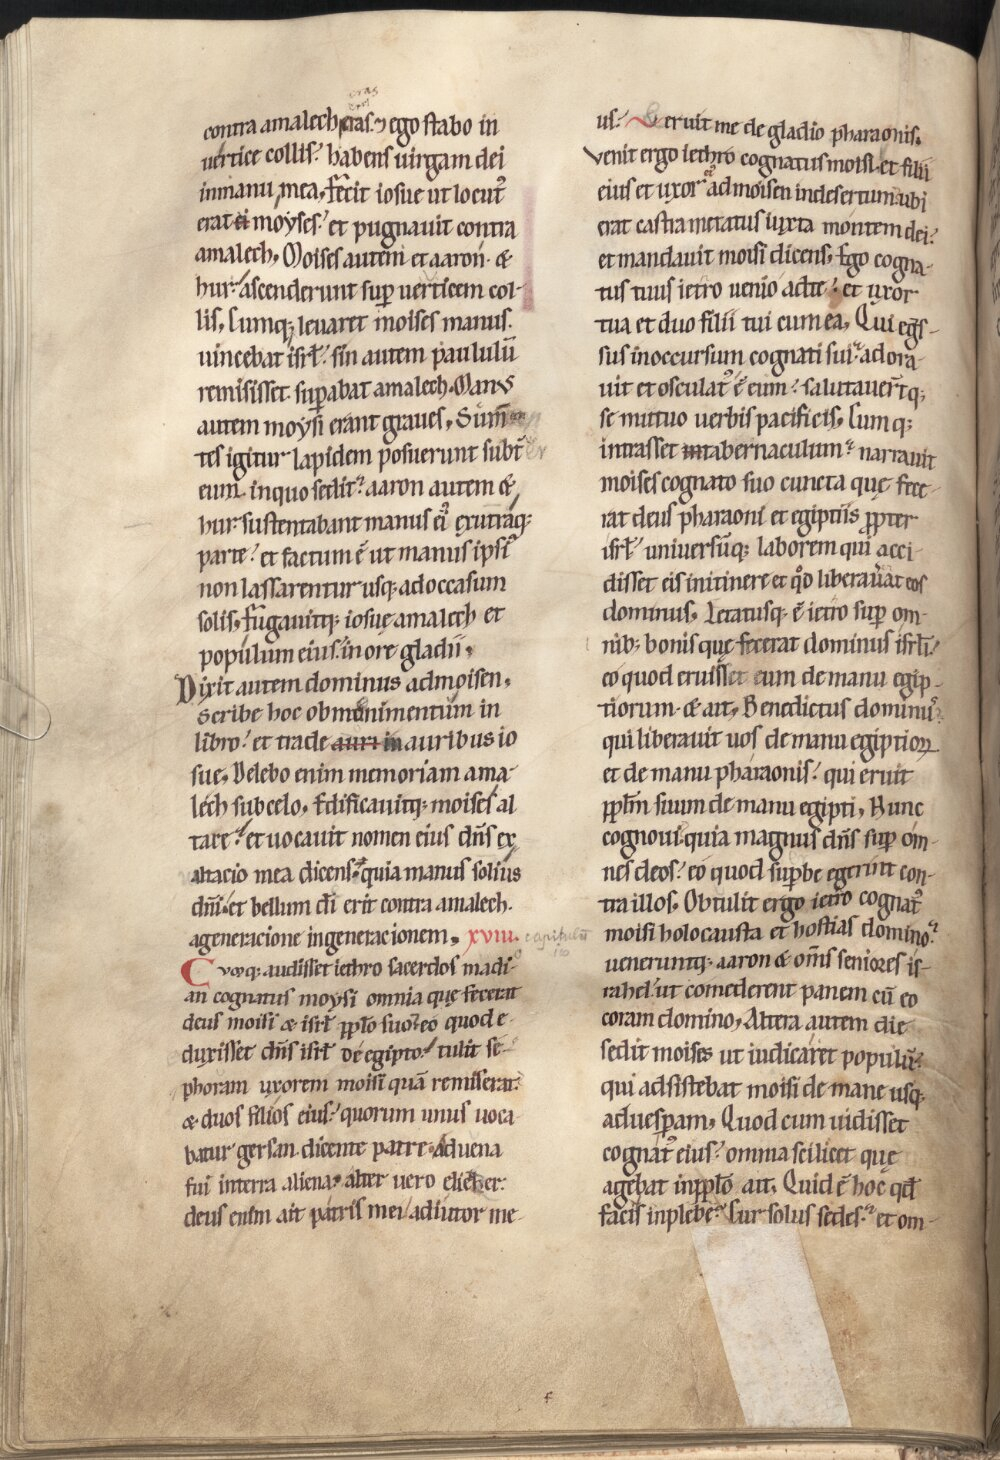 cras
contra amalech cras. ego stabo in
uertice collis. habens uirgam dei
inmanu mea. fecit iosue ut locut᷒
erat ei moyses. et pugnauit contra
amalech. Moises autem et aaron. &
hur. ascenderunt suꝑ uerticem col-
lis. Cumq; leuaret moises manus.
uincebat isrł. sin autem paululū
remisisset. suꝑabat amalech. Manus
autem moysi erant graues. Sum̄
tes igitur lapidem posuerunt subt᷒
eum. inquo sedit. aaron autem &
hur. sustentabant manus ei᷒ exutraq;
parte. et factum ē ut manus ipsi᷒
non lassarentur usq; adoccasum
solis. fugauitq; iosue amalech et
populum eius. in ore gladii.
Dixit autem dominus admoisen.
scribe hoc obmonimentum in
libro. et trade auri in auribus io
sue. Delebo enim memoriam ama-
lech subcelo. Edificauitq; moises al
tare. et uocauit nomen eius dn̄s ex
altacio mea dicens. quia manus solius
dn̄i. et bellum dī erit contra amalech.
ageneracione ingeneracionem. xviii. capitulū
Cunq; audisset iethro sacerdos madi-
an cognatus moysi omnia que fecerat
deus moisi & isrł ꝓꝑlo suo. eo quod e-
duxisset dn̄s isrł de egipto. tulit se-
phoram uxorem moisi quā remiserat.
& duos filios eius. quorum unus uoca
batur gersan. dicente patre. Aduena
fui interra aliena. alter uero eliezer.
deus enim ait patris mei adiutor me-
us. Et eruit me de gladio pharaonis.
Venit ergo iethro cognatus moisi. et filii
eius et uxor ei᷒ ad moisen indesertum. ubi
erat castra metatus iuxta montem dei.
et mandauit moisi dicens. Ego cogna-
tus tuus ietro uenio adte. et uxor
tua et duo filii tui cum ea. Qui egs-
sus inoccursum cognati sui. adora-
uit et osculat᷒ ē eum. salutauer̄tq;
se mutuo uerbis pacificis. Cumq;
intrasset intabernaculum. narrauit
moises cognato suo cuncta que fece-
rat deus pharaoni et egiptiis ꝓpter
isrł. uniuersūq; laborem qui acci-
disset eis initinere et qd̄ liberau᷒at eos
dominus. Letatusq; ē ietro suꝑ om-
nib; bonis que fecerat dominus isrłi.
eo quod eruisset eum de manu egip-
tiorum. & ait. Benedictus dominu᷒.
qui liberauit uos de manu egiptioꝝ
et de manu pharaonis. qui eruit
ꝓꝑlm suum de manu egipti. Nunc
cognoui. quia magnus dn̄s suꝑ om-
nes deos. eo quod suꝑbe egerint con-
tra illos. Obtulit ergo ietro cognat᷒
moisi holocausta et hostias domino.
ueneruntq; aaron & om̄s seniores is-
rahel. ut comederent panem cū eo
coram domino. Altera autem die
sedit moises ut iudicaret populū.
qui adsistebat moisi de mane usq;
aduesꝑam. Quod cum uidisset
cognat᷒ eius. omnia scilicet que
agebat inꝓꝑlo ait. Quid ē hoc qd̄
facis inplebe. Cur solus sedes. et om-
f